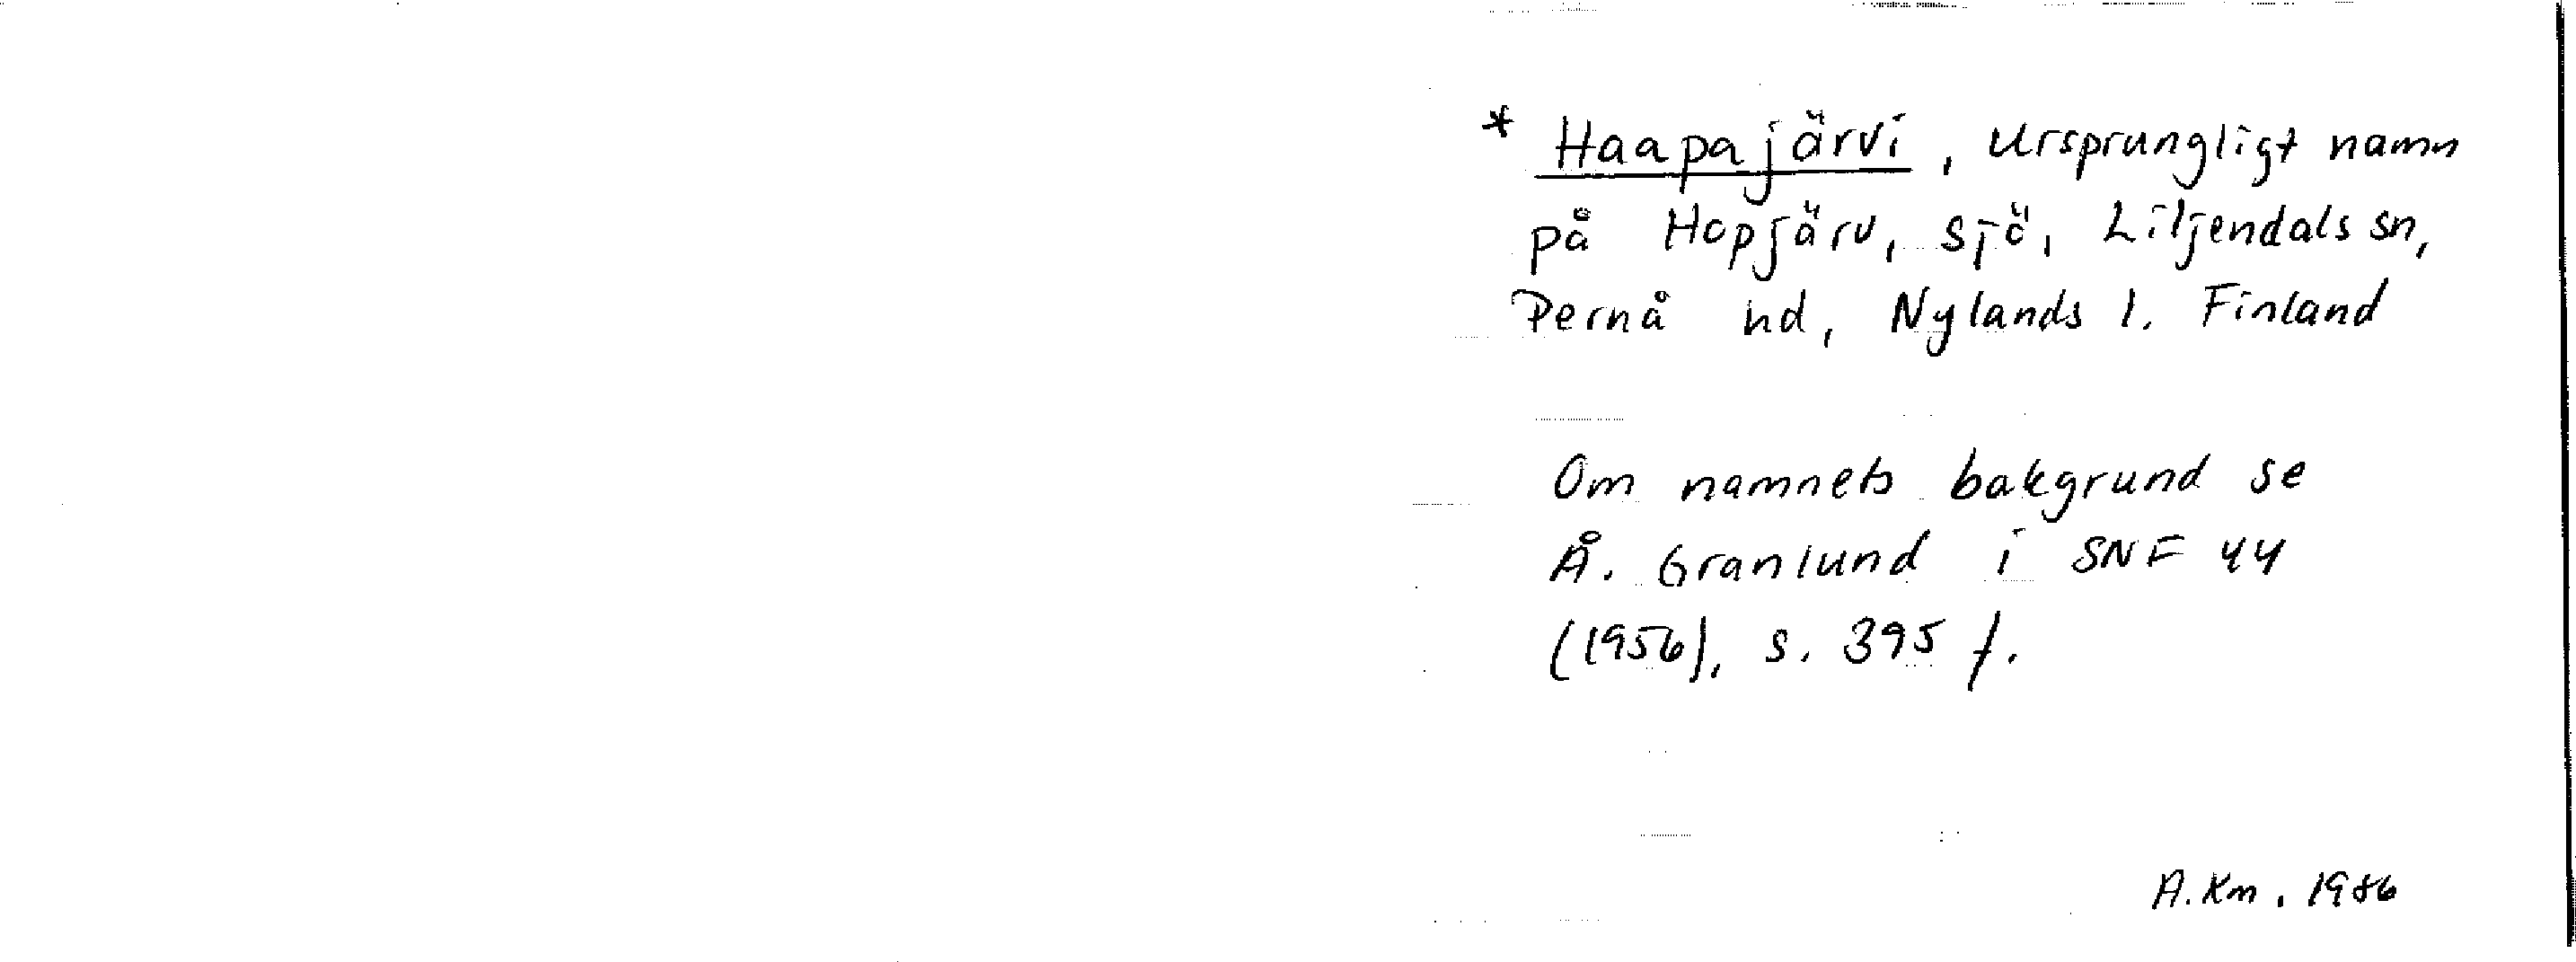 * Haapajärvi, ursprungligt namn
på Hopjärv, sjö, Liljendals sn,
Pernå hd, Nylands l. Finland
Om namnets bakgrund se
Å. Granlund i SNF 44
(1956), s. 395 f.
A. Km. 1986